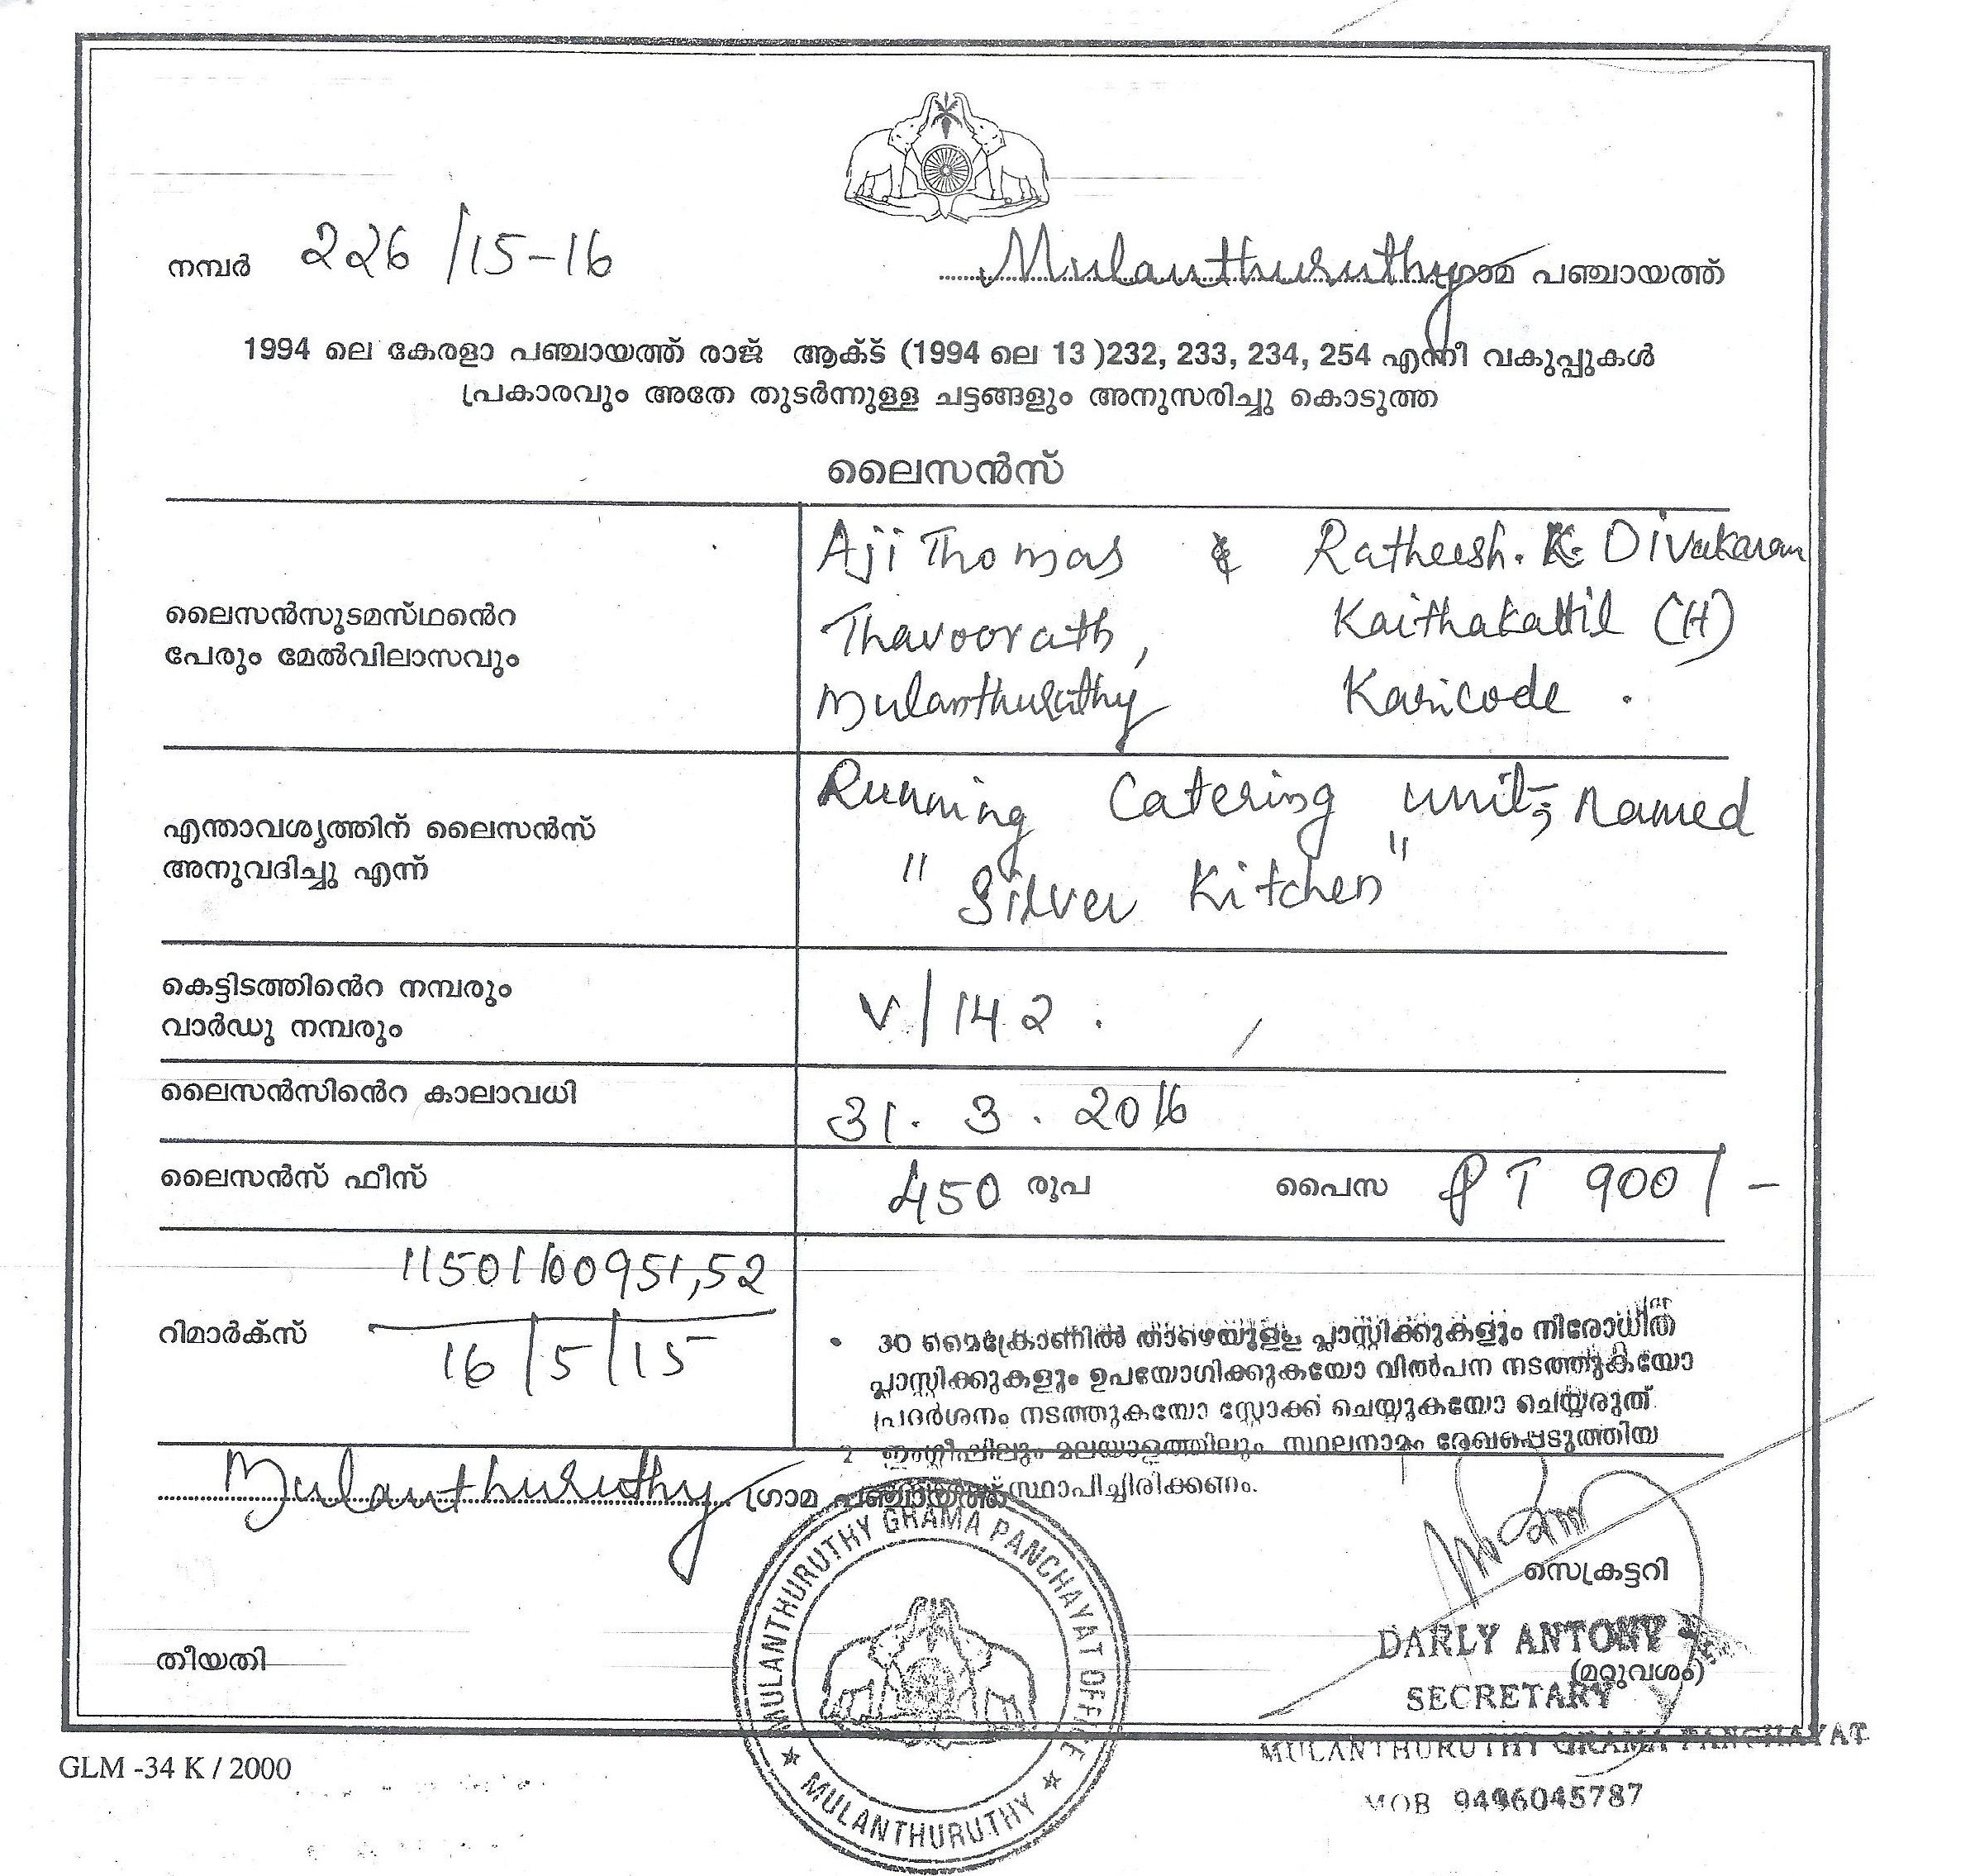 നമ്പർ 226/15-16
Mulanthuruthy ഗ്രാമ പഞ്ചായത്ത്
1994 ലെ കേരളാ പഞ്ചായത്ത് രാജ് ആക്ട് (1994 ലെ 13 )232, 233, 234, 254 എന്നീ വകുപ്പുകൾ
പ്രകാരവും അതേ തുടർന്നുള്ള ചട്ടങ്ങളും അനുസരിച്ചു കൊടുത്ത
ലൈസൻസ്
ലൈസൻസുടമസ്ഥന്റെ
പേരും മേൽവിലാസവും
Aji Thomas & Ratheesh. K. Divakaran
Thavoorath, Kaithakattil (H)
Mulanthuruthy Karicode .
എന്താവശ്യത്തിന് ലൈസൻസ്
അനുവദിച്ചു എന്ന്
Running Catering unit, named
" Silver Kitchen "
കെട്ടിടത്തിന്റെ നമ്പരും
വാർഡു നമ്പരും
V/142 .
ലൈസൻസിന്റെ കാലാവധി 31. 3 . 2016
ലൈസൻസ് ഫീസ് 450 രൂപ പൈസ PT 900/-
റിമാർക്സ്
11501100951,52
16/5/15
• 30 മൈക്രോണിൽ താഴെയുള്ള പ്ലാസ്റ്റിക്കുകളും നിരോധിത
പ്ലാസ്റ്റിക്കുകളും ഉപയോഗിക്കുകയോ വിൽപന നടത്തുകയോ
പ്രദർശനം നടത്തുകയോ സ്റ്റോക്ക് ചെയ്യുകയോ ചെയ്യരുത്.
2 ഇംഗ്ലീഷിലും മലയാളത്തിലും സ്ഥലനാമം രേഖപ്പെടുത്തിയ
സ്ഥാപിച്ചിരിക്കണം.
Mulanthuruthy ഗ്രാമ പഞ്ചായത്ത്
MULANTHURUTHY GRAMA PANCHAYAT OFFICE
★ MULANTHURUTHY ★
സെക്രട്ടറി
DARLY ANTONY
തീയതി
(മറുവശം)
SECRETARY
MULANTHURUTHY GRAMA PANCHAYAT
MOB 9496045787
GLM -34 K / 2000